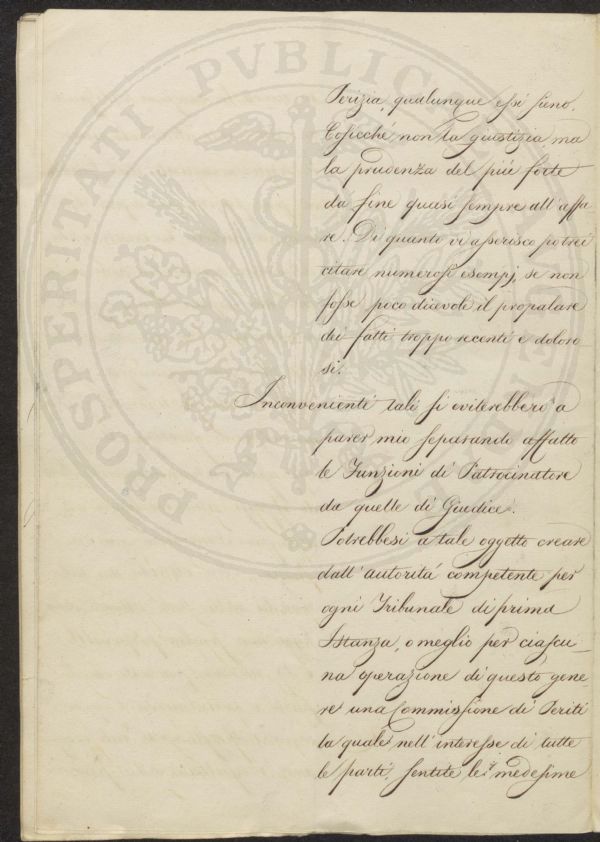 PROSPERITATI PVBLICAE
Perizia, qualunque essi sieno.
Cosicché non la giustizia ma
la prudenza del più forte
dà fine quasi sempre all'affa
re. Di quanto vi asserisco potrei
citare numerosi esempj, se non
fosse poco dicevole il propalare
dei fatti troppo recenti e doloro
si.
Inconvenienti tali si eviterebbero a
parer mio separando affatto
le Funzioni di Patrocinatore
da quelle di Giudice.
Potrebbesi a tale oggetto creare
dall'autorità competente per
ogni Tribunale di prima
Istanza, o meglio per ciascu_
na operazione di questo gene_
re una Commissione di Periti
la quale nell'interesse di tutte
le parti, sentite le medesime